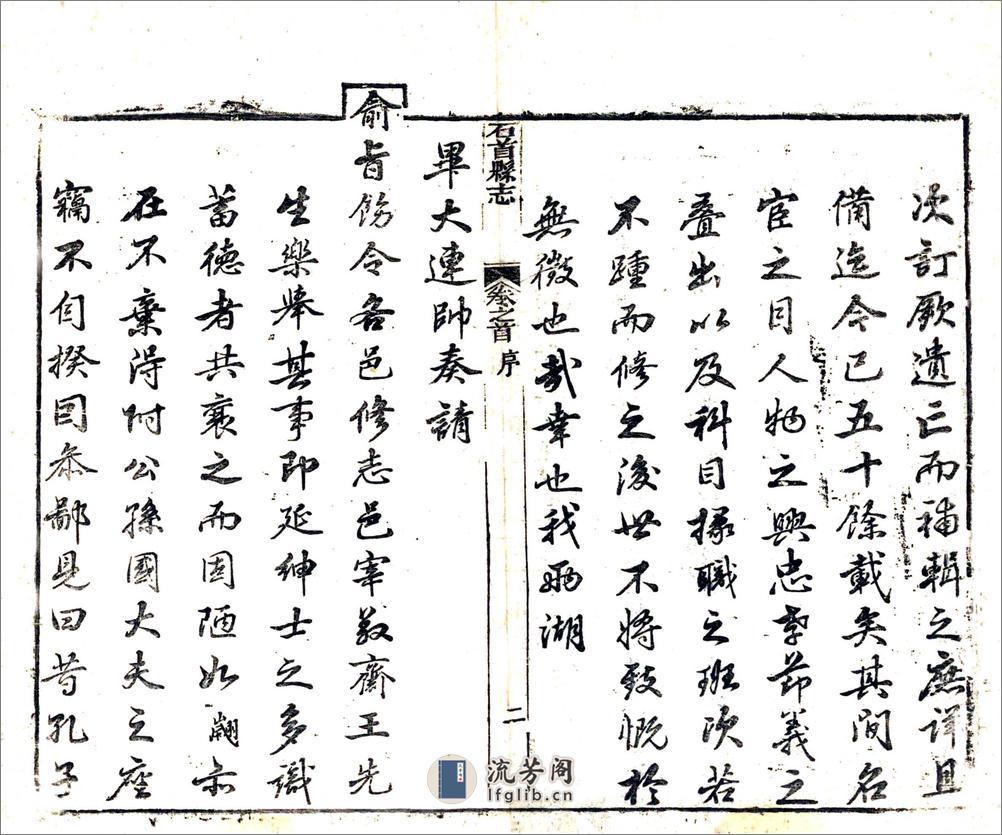 次訂厥遺亡而補輯之庶詳且
備迄今已五十餘載矣其間名
宦之目人物之興忠孝節義之
疊出以及科目掾職之班頃若
不踵而修之後世不將致慨於
無徵也哉幸也我
湖
畢大連帥奏請
俞旨飭令各邑修志邑宰敬齋王先
生樂舉其事即延紳士之多識
蓄德者共襄之而固陋如翽亦
在不棄得附公孫國大夫之座
竊不自揆因忝鄙見曰昔孔子
石首縣志
卷之首
序
二
流芳阁
lfglib.cn